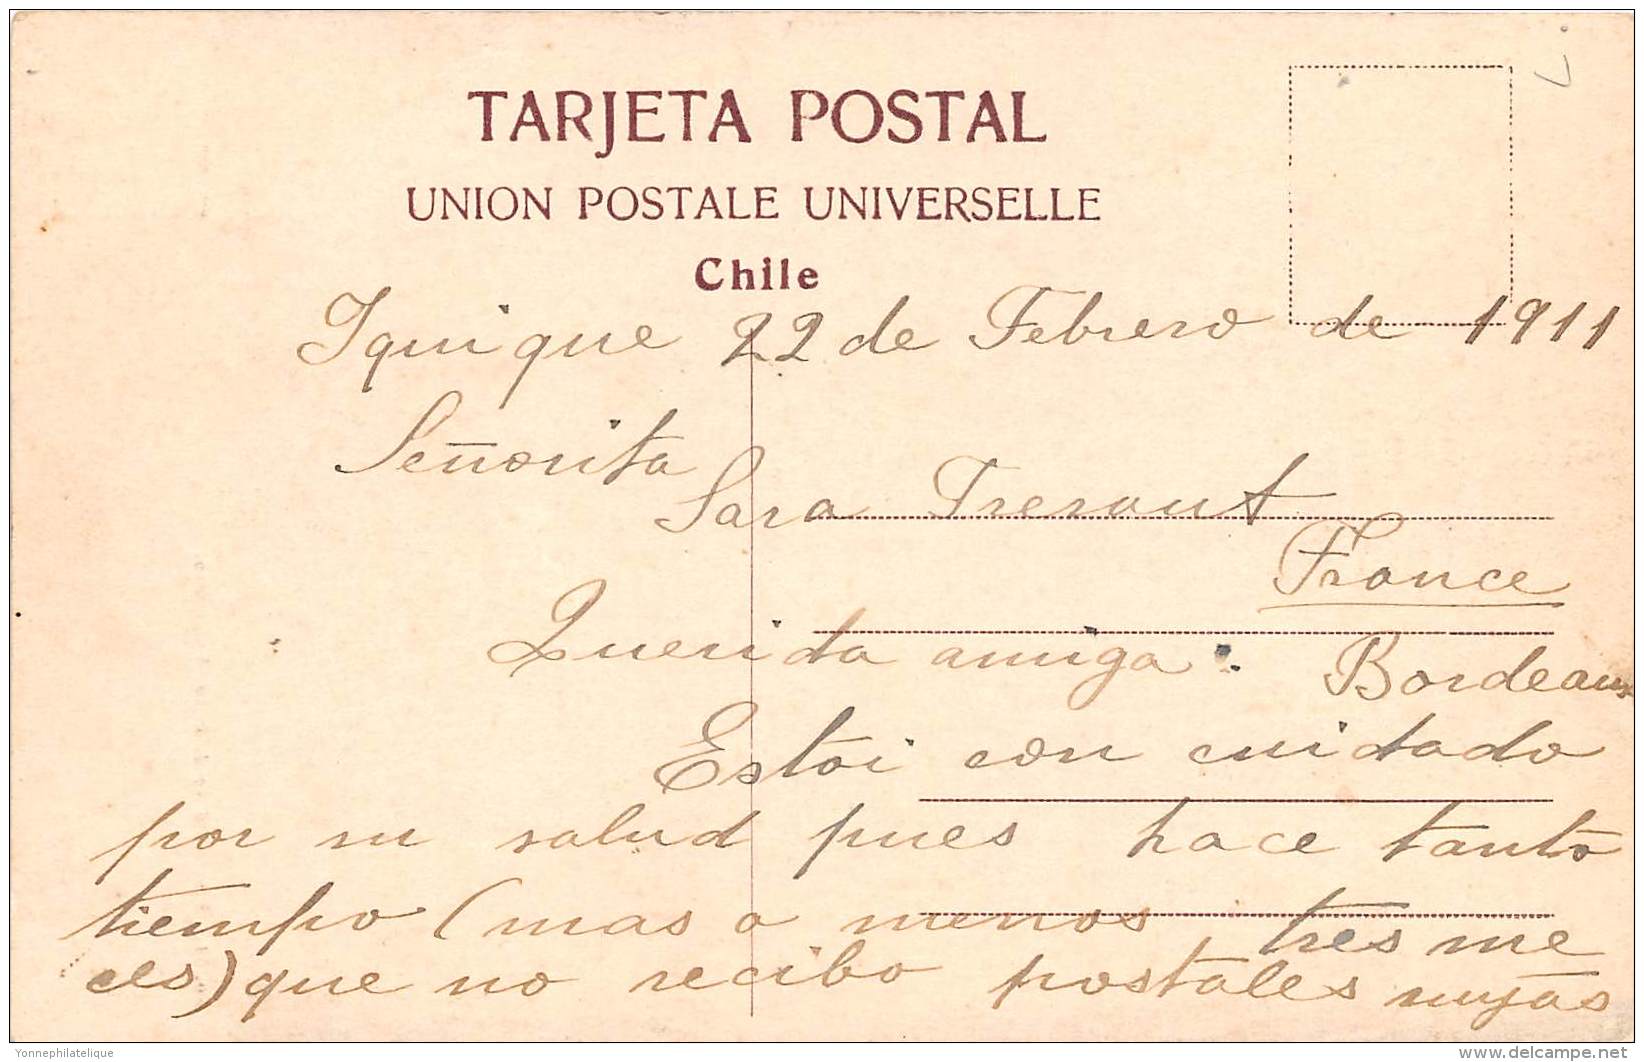 TARJETA POSTAL
UNION POSTALE UNIVERSELLE
Chile
Iquique 22 de Febrero de 1911
Señorita
Sara
France
Querida amiga:
Bordeaux
Estoi con cuidado
por su salud pues hace tanto
tiempo (mas o menos tres me
ces) que no recibo postales suyas
Yonnephilatelique
delcampe.net